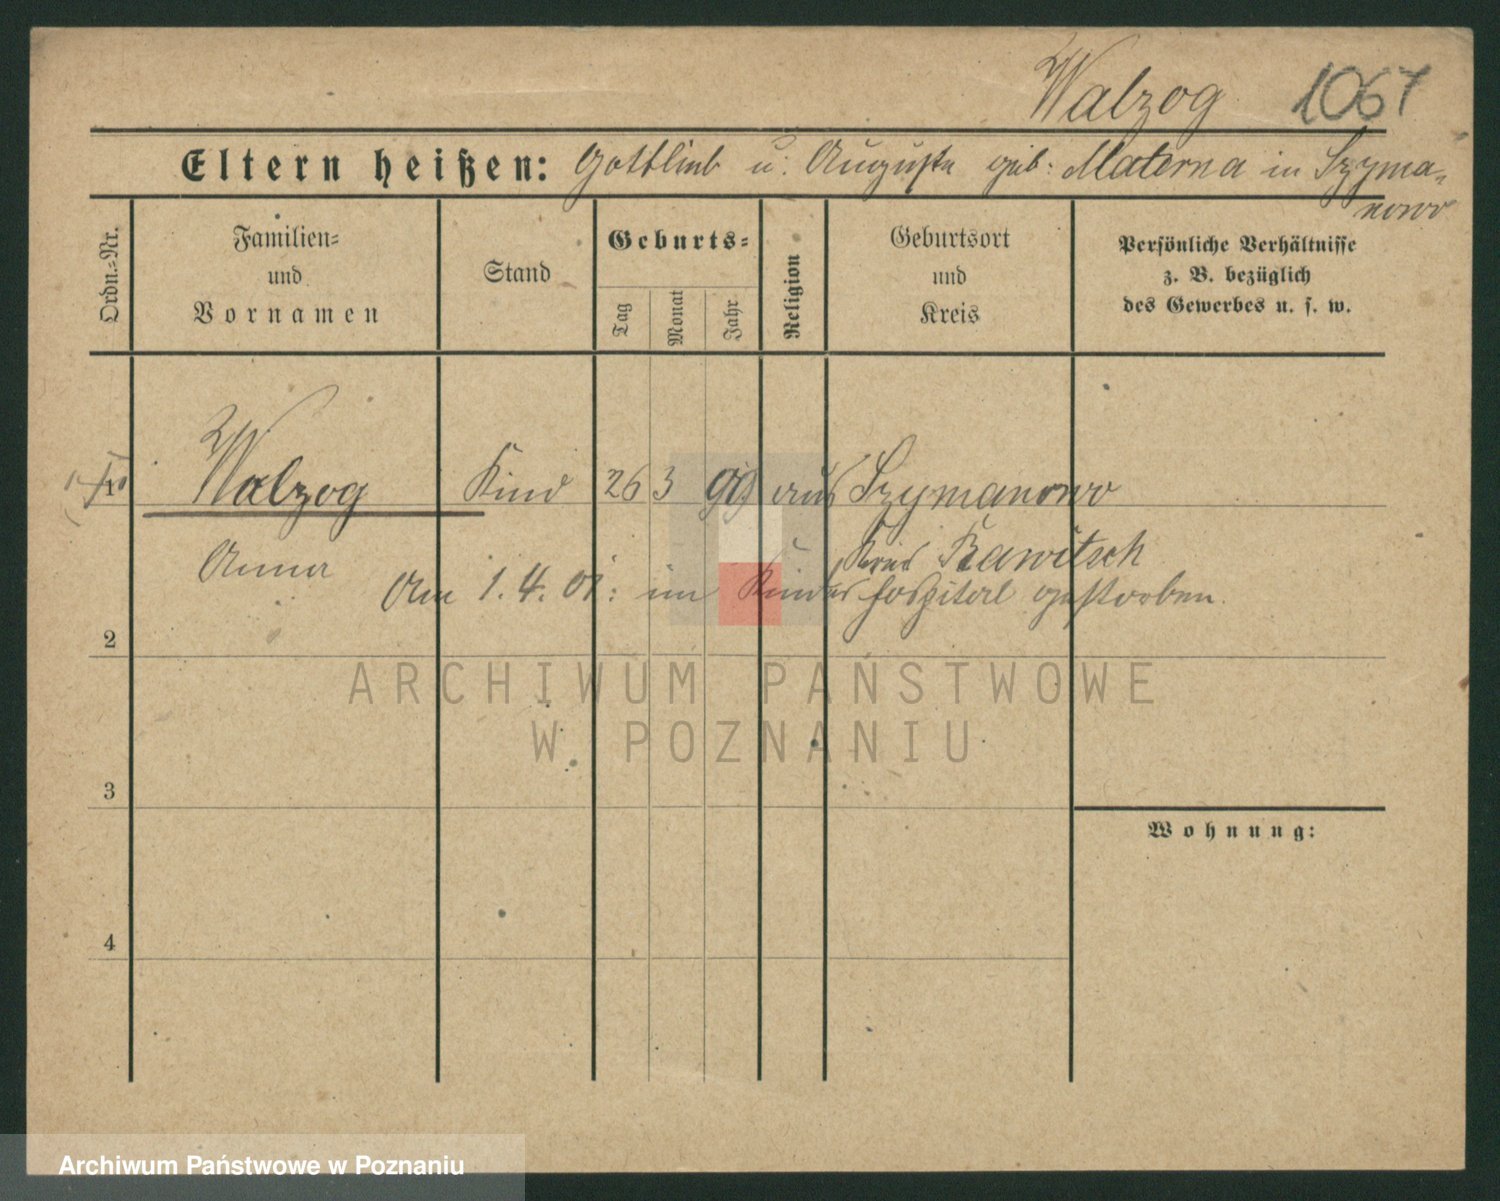 Walzog 1067
Eltern heißen: Gottlieb u. Auguste geb. Materna in Szyma-
nowo
Ordn.-Nr.
Familien-
und
Vornamen
Stand
Geburts-
Tag
Monat
Jahr
Religion
Geburtsort
und
Kreis
Persönliche Verhältnisse
z. B. bezüglich
des Gewerbes u. s. w.
1 Walzog Kind 26 3 99 aus Szymanowo
Anna Kreis Rawitsch
Am 1. 4. 01. im Kinderhospital gestorben.
2
3
Wohnung:
4
ARCHIWUM PAŃSTWOWE
W POZNANIU
Archiwum Państwowe w Poznaniu